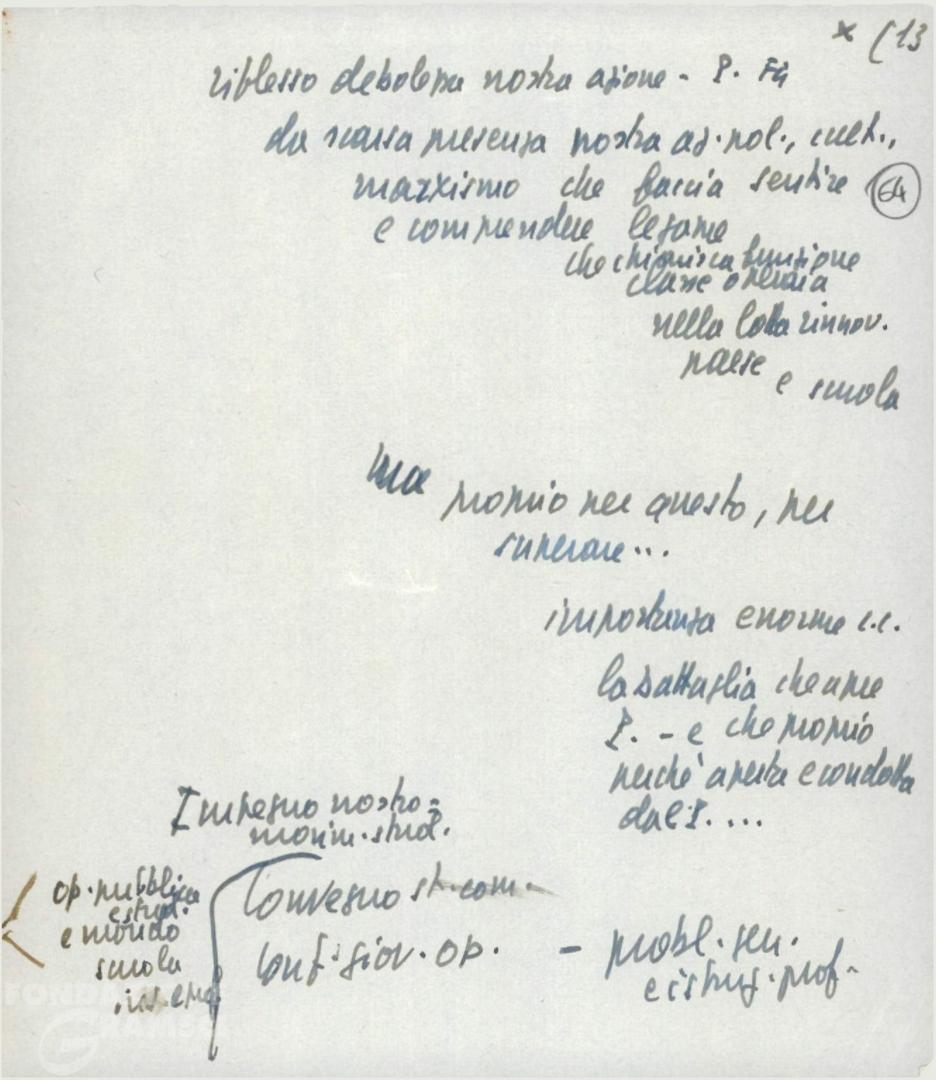 x (13
riflesso debolezza nostra azione - P. Fu
da scarsa presenza nostra az. pol., cult.,
marxismo che faccia sentire
64
e comprendere legame
che chiarisca funzione
classe operaia
nella lotta rinnov.
paese
e scuola
ma
proprio per questo, per
superare...
importanza enorme c.c.
la battaglia che apre
P. - e che proprio
perché aperta e condotta
dal P. ...
Impegno nostro =
movim. stud.
op. pubblica
e stud.
e mondo
scuola
Convegno st. com.
Conf. giov. op. - probl. gen.
e istruz. prof.
FONDAZ
GRAMSCI